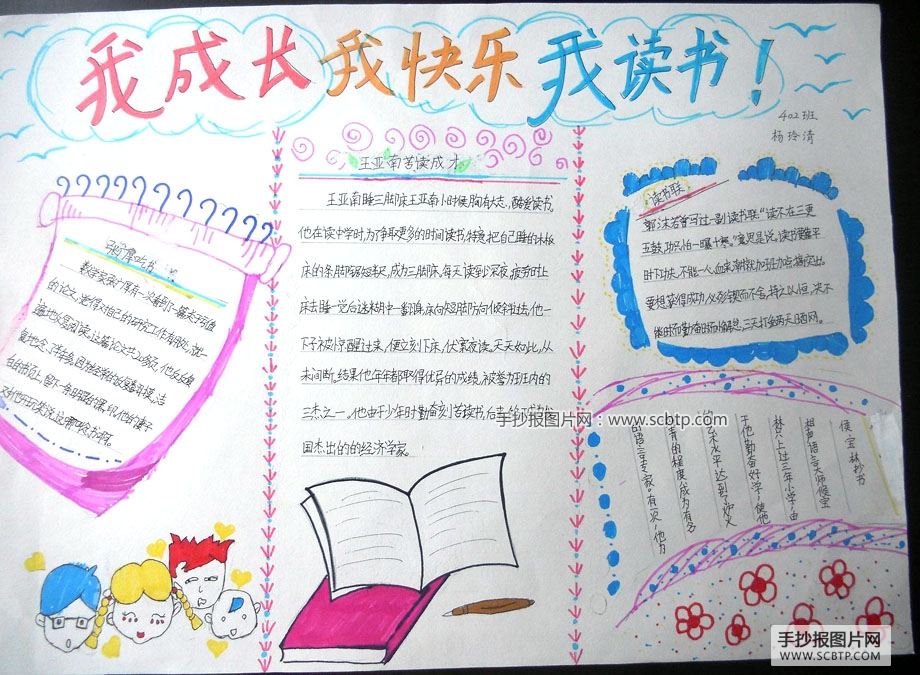 我成长 我快乐 我读书!
402班
杨玲清
王亚南苦读成才
王亚南睡三脚床王亚南小时候胸有大志,酷爱读书。
他在读中学时,为了争取更多的时间读书,特意把自己睡的木板
床的一条脚锯短半尺,成为三脚床。每天读到深夜,疲劳时上
床去睡一觉后迷糊中一翻身,床向短脚方向倾斜过去,他一
下子被惊醒过来,便立刻下床,伏案夜读。天天如此,从
未间断。结果他年年都取得优异的成绩,被誉为班内的
三杰之一。他由于少年时勤奋刻苦读书,后
国杰出的的经济学家。
张广厚吃书
数学家张广厚有一次看到了一篇关于亏值
的论文,觉得对自己的研究工作有用处,就一
遍又一遍地
读书联
郭沫若曾写过一副读书联:"读不在三更
五鼓,功只怕一曝十寒。"意思是说,读书要靠平
时下功夫,不能一心血来潮就加班加点搞突击。
要想获得成功,必须锲而不舍,持之以恒,决不
三天打鱼两天晒网。
侯宝林抄书
相声语言大师侯宝
林只上过三年小学,由
于他勤奋好学,使他
的艺术水平达到了炉火
纯青的程度,成为有名
的语言专家。有一次,他为
手抄报图片网:www.scbtp.com
手抄报图片网
WWW.SCBTP.COM